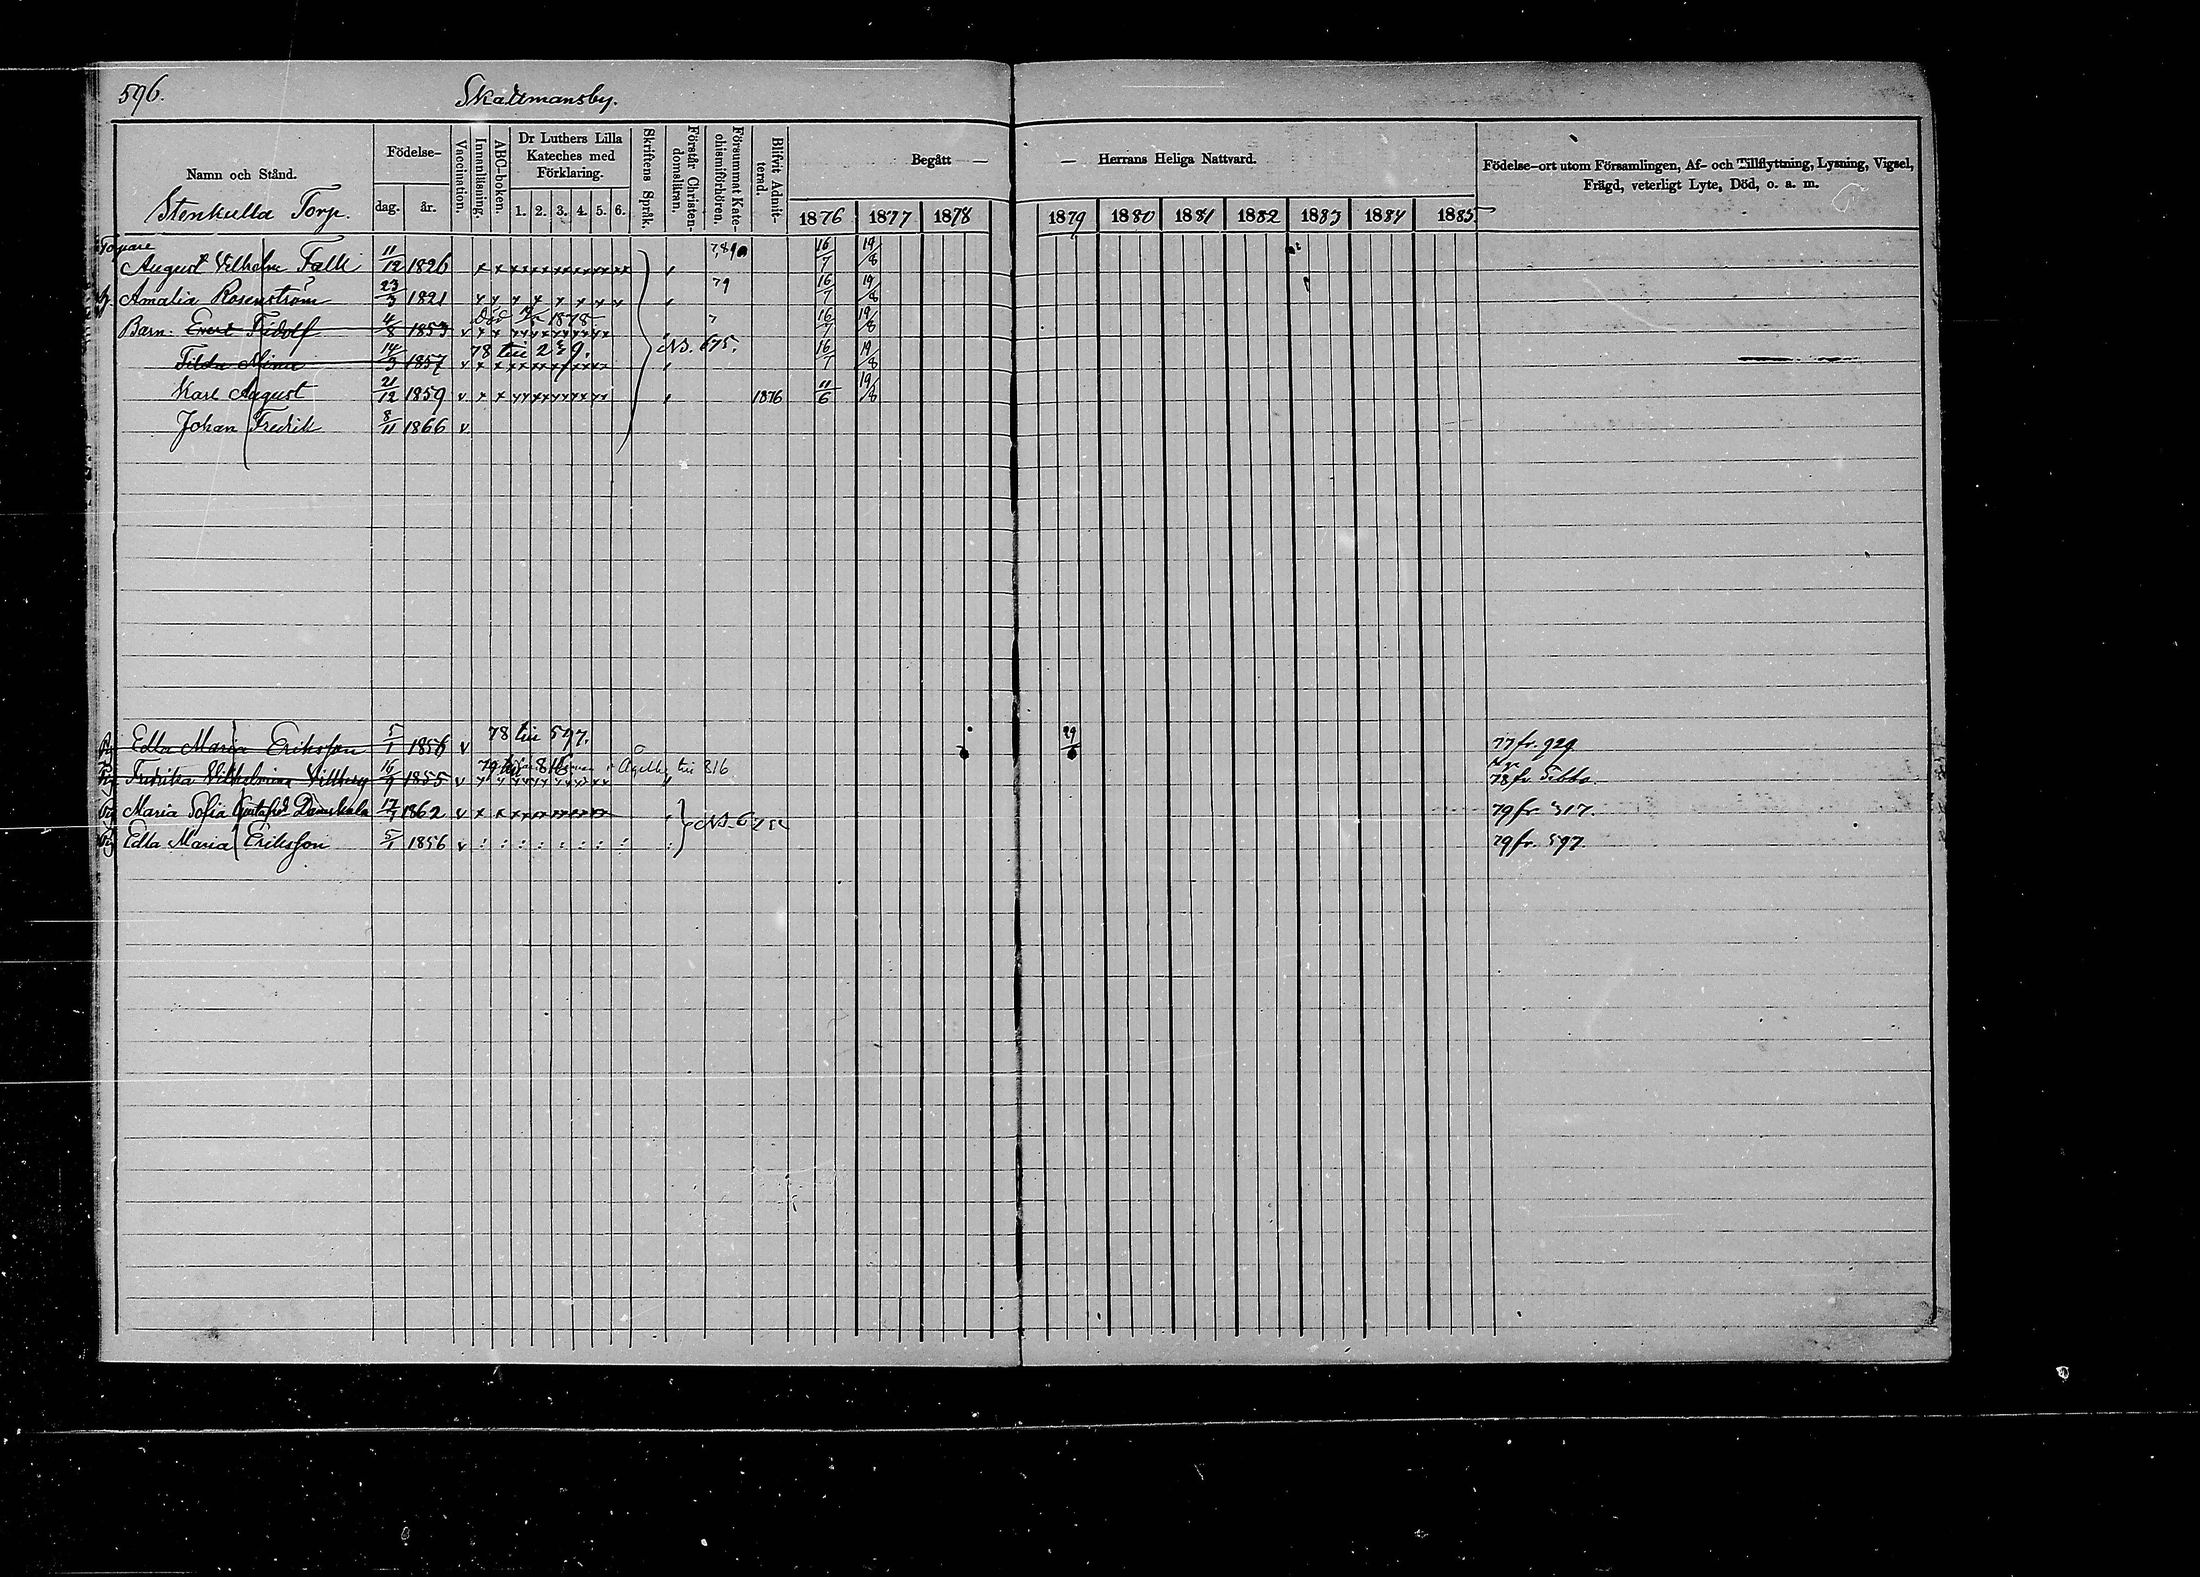 596.
Skattmansby.
Namn och Stånd.
Födelse-
dag.
år.
Vaccination.
Innanläsning.
ABC-boken.
Dr Luthers Lilla Kateches med Förklaring.
1. 2. 3. 4. 5. 6.
Skriftens Språk.
Förstår Christendomsläran.
Försummat Katechismiförhören.
Blifvit Admitterad.
Begått — — Herrans Heliga Nattvard.
1876 1877 1878 1879 1880 1881 1882 1883 1884 1885
Födelse-ort utom Församlingen, Af- och Tillflyttning, Lysning, Vigsel,
Frägd, veterligt Lyte, Död, o. a. m.
Stenkulla Torp.
August Vilhelm Falk 11/12 1826 16/7 19/8
Amalia Rosenström 23/3 1821 79 16/7 19/8
Barn: Fridolf 4/8 1853 v Död 1878 7 16/7 19/8
14/9 1857 v 78 till 239. Nb. 675. 16/7 19/8
Karl August 21/12 1859 v 1876 11/6 19/8
Johan Fredrik 8/11 1866 v
Edla Maria Eriksson 5/1 1856 v 78 till 597. 77 fr. 929
Fredrika Vilhelmina 16/9 1855 v till 816 78 fr. Sibbo.
Maria Sofia 1862 v 79 fr. 317.
Edla Maria Eriksson 5/1 1856 v 79 fr. 597.